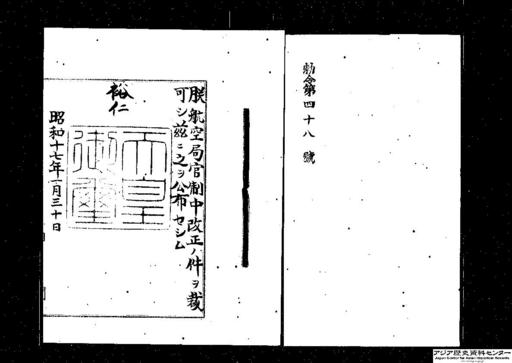 勅令第四十八號
朕航空局官制中改正ノ件ヲ裁
可シ茲ニ之ヲ公布セシム
裕仁
天皇
御璽
昭和十七年一月三十日
アジア歴史資料センター
Japan Center for Asian Historical Records